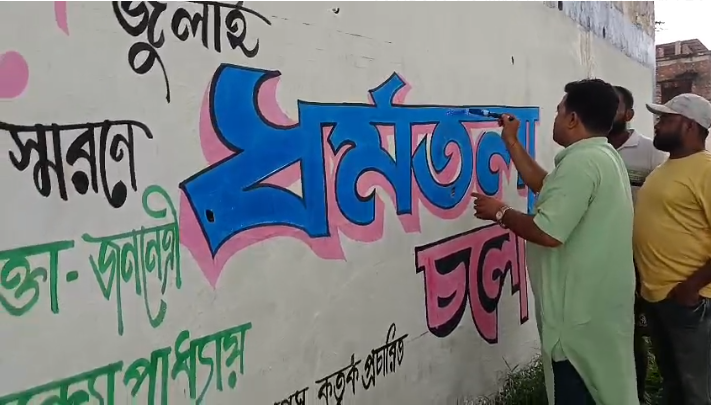 জুলাই
স্মরনে
ধর্মতলা
চলো
ক্তা - জননেত্রী
ন্দ্যোপাধ্যায়
কর্তৃক প্রচারিত